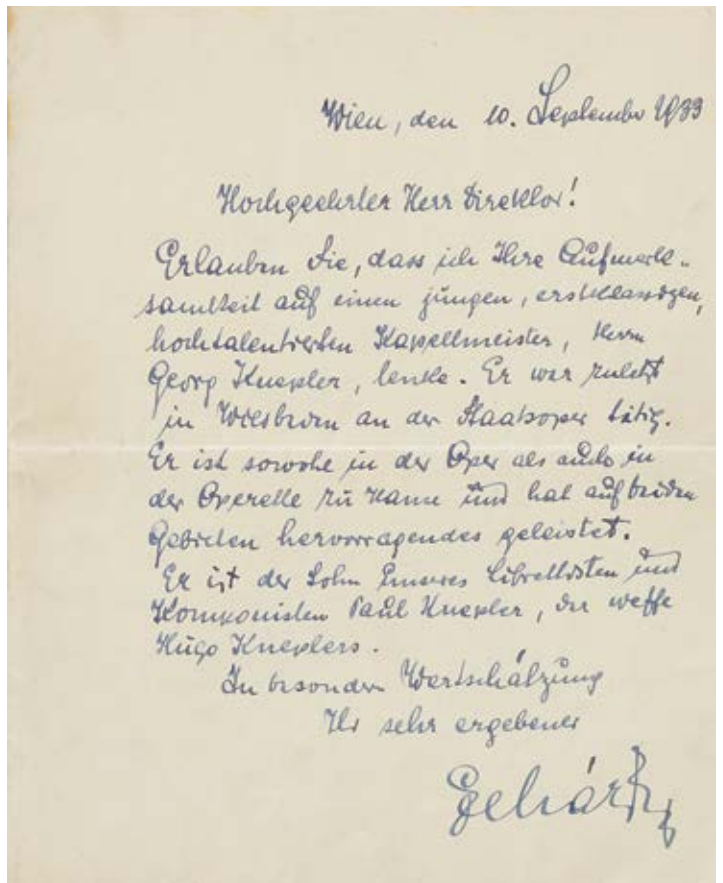 Wien, den 10. September 1933
Hochgeehrter Herr Direktor!
Erlauben Sie, dass ich Ihre Aufmerk-
samkeit auf einen jungen, erstklassigen,
hochtalentierten Kapellmeister, Herrn
Georg Knepler, lenke. Er war zuletzt
in Wiesbaden an der Staatsoper tätig.
Er ist sowohl in der Oper als auch in
der Operette zu Hause und hat auf beiden
Gebieten hervorragendes geleistet.
Er ist der Sohn Librettisten und
Komponisten Paul Knepler, der Neffe
Hugo Kneplers.
In besonderer Wertschätzung
Ihr sehr ergebener
Lehár